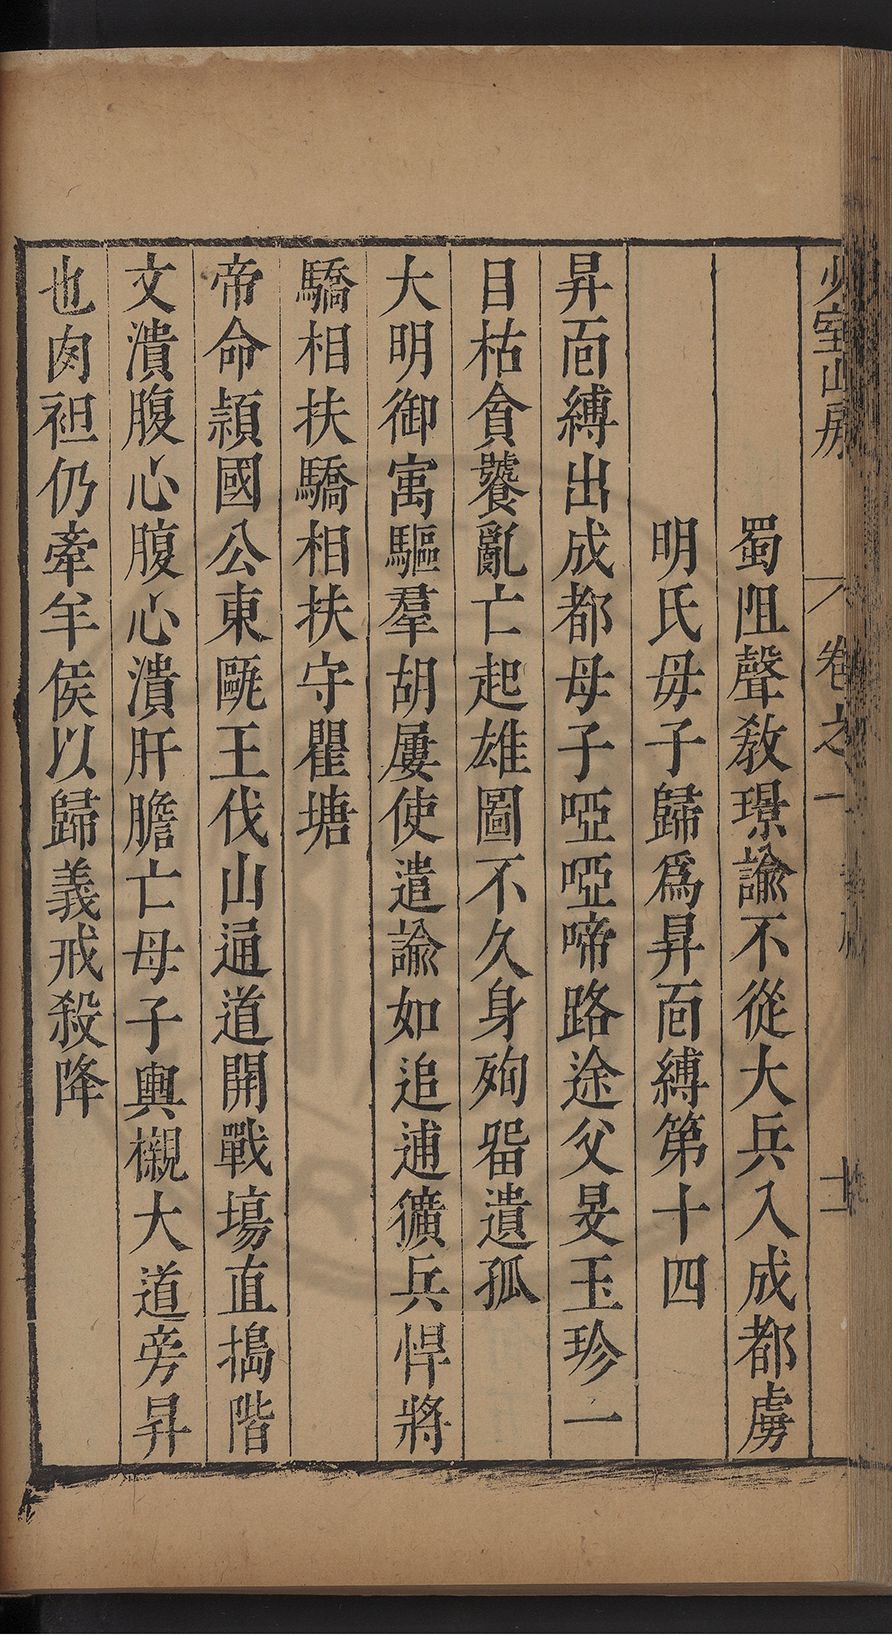 少室山房 卷之一 十二
蜀阻聲敎璟諭不從大兵入成都虜
明氏母子歸爲昇靣縛第十四
昇靣縛出成都母子啞啞啼路途父旻玉珍一
目枯貪饕亂亡起雄圖不久身殉畱遺孤
大明御寓驅羣胡屢使遣諭如追逋獷兵悍將
驕相扶驕相扶守瞿塘
帝命潁國公東甌王伐山通道開戰塲直搗階
文潰腹心腹心潰肝膽亡母子輿櫬大道旁昇
也肉袒仍牽羊侯以歸義戒殺降